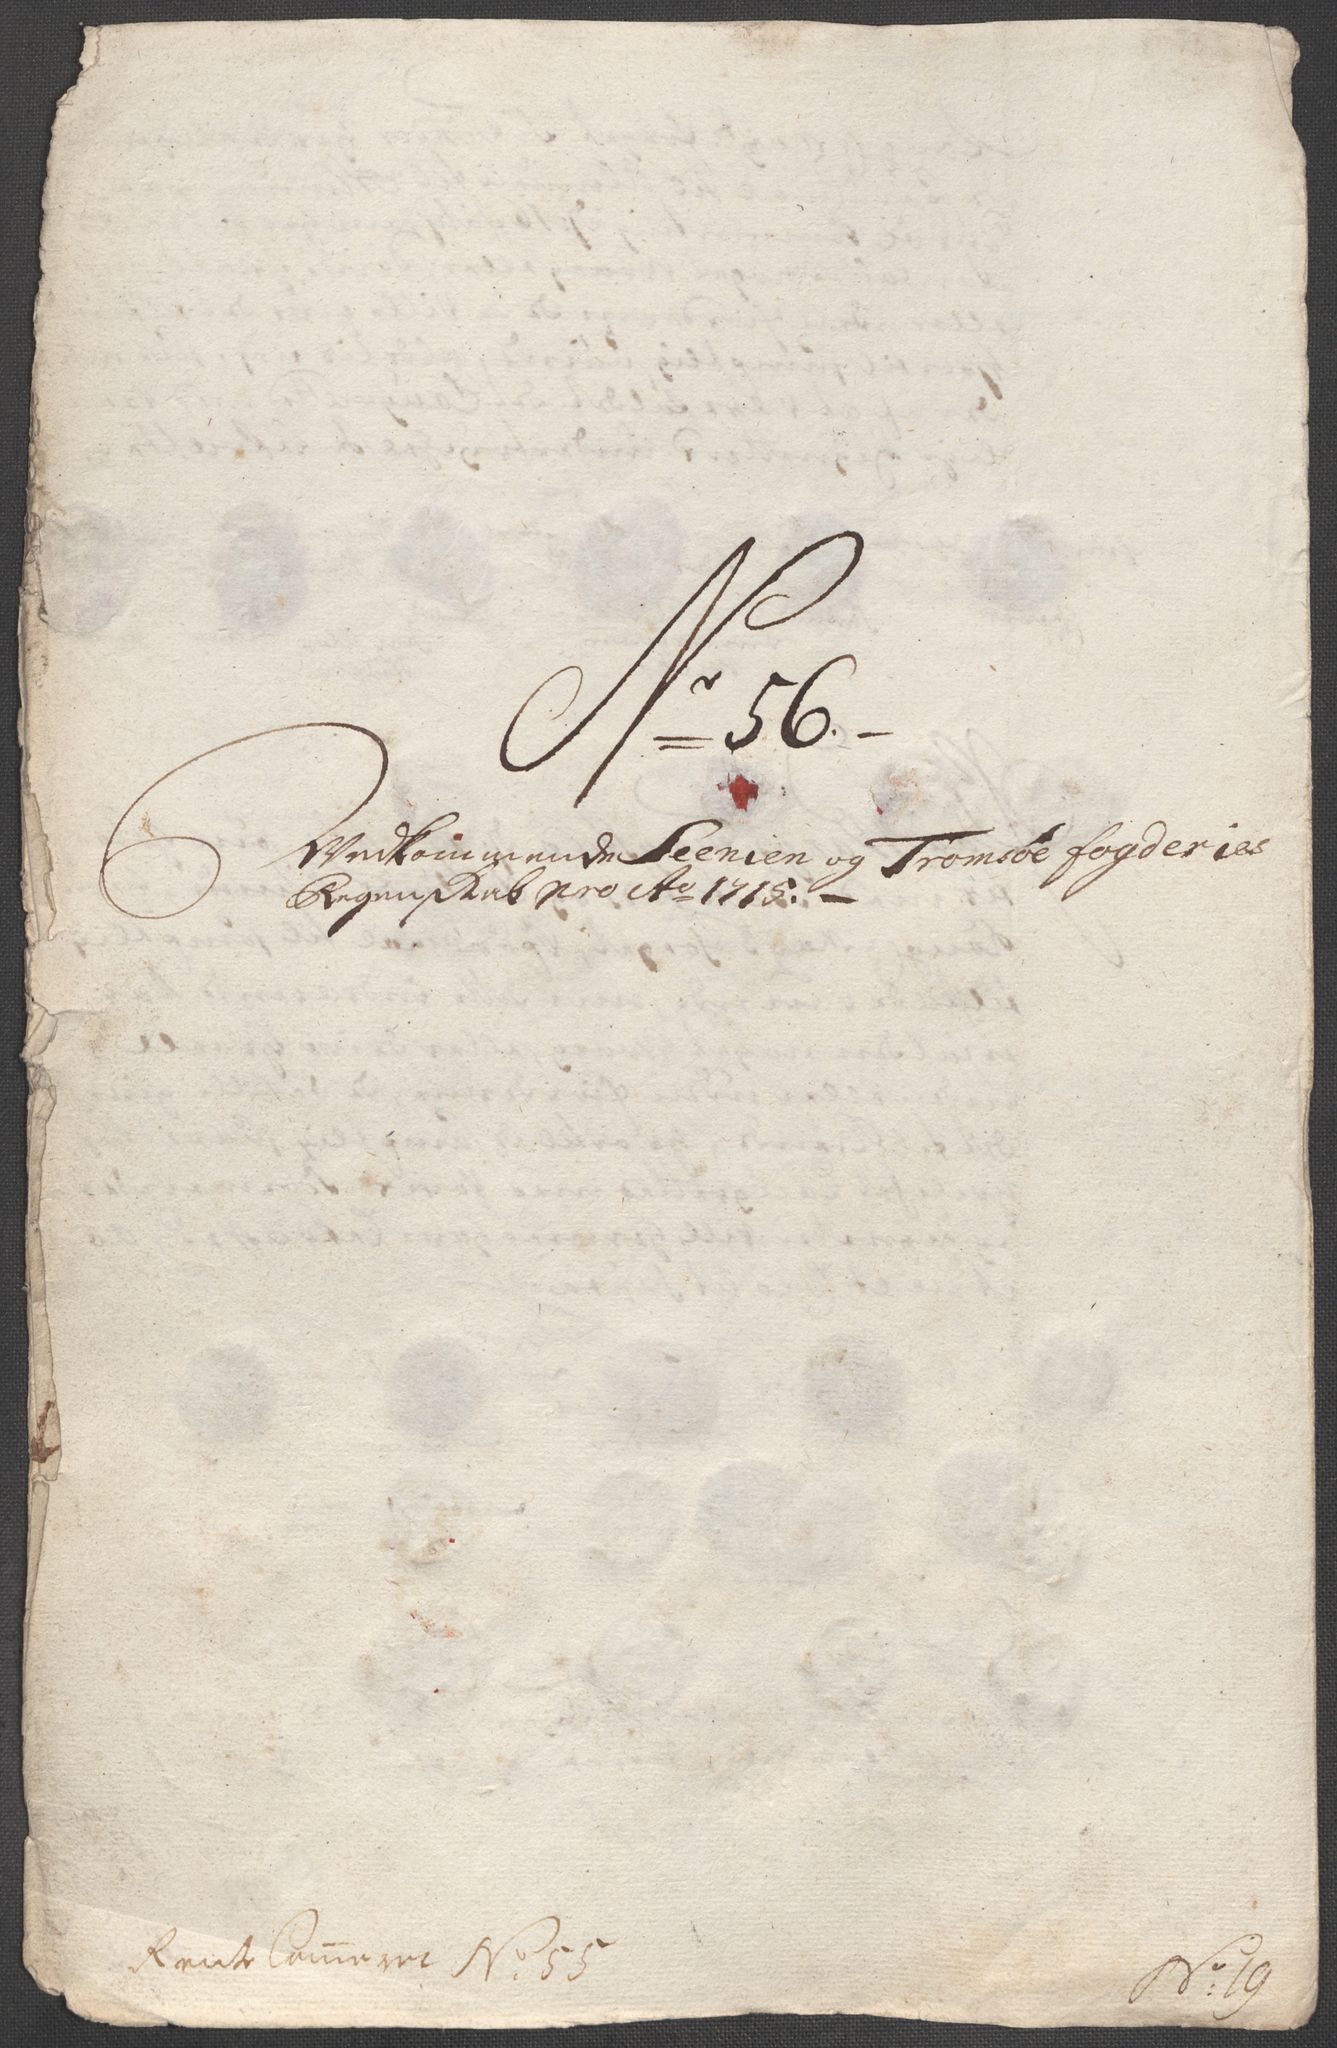 Nr 56.
Vedkommende Seenien og Tromsöe fogderies
Regenskab pro Ao 1715.
Rente Cammeret No: 55
No: 19